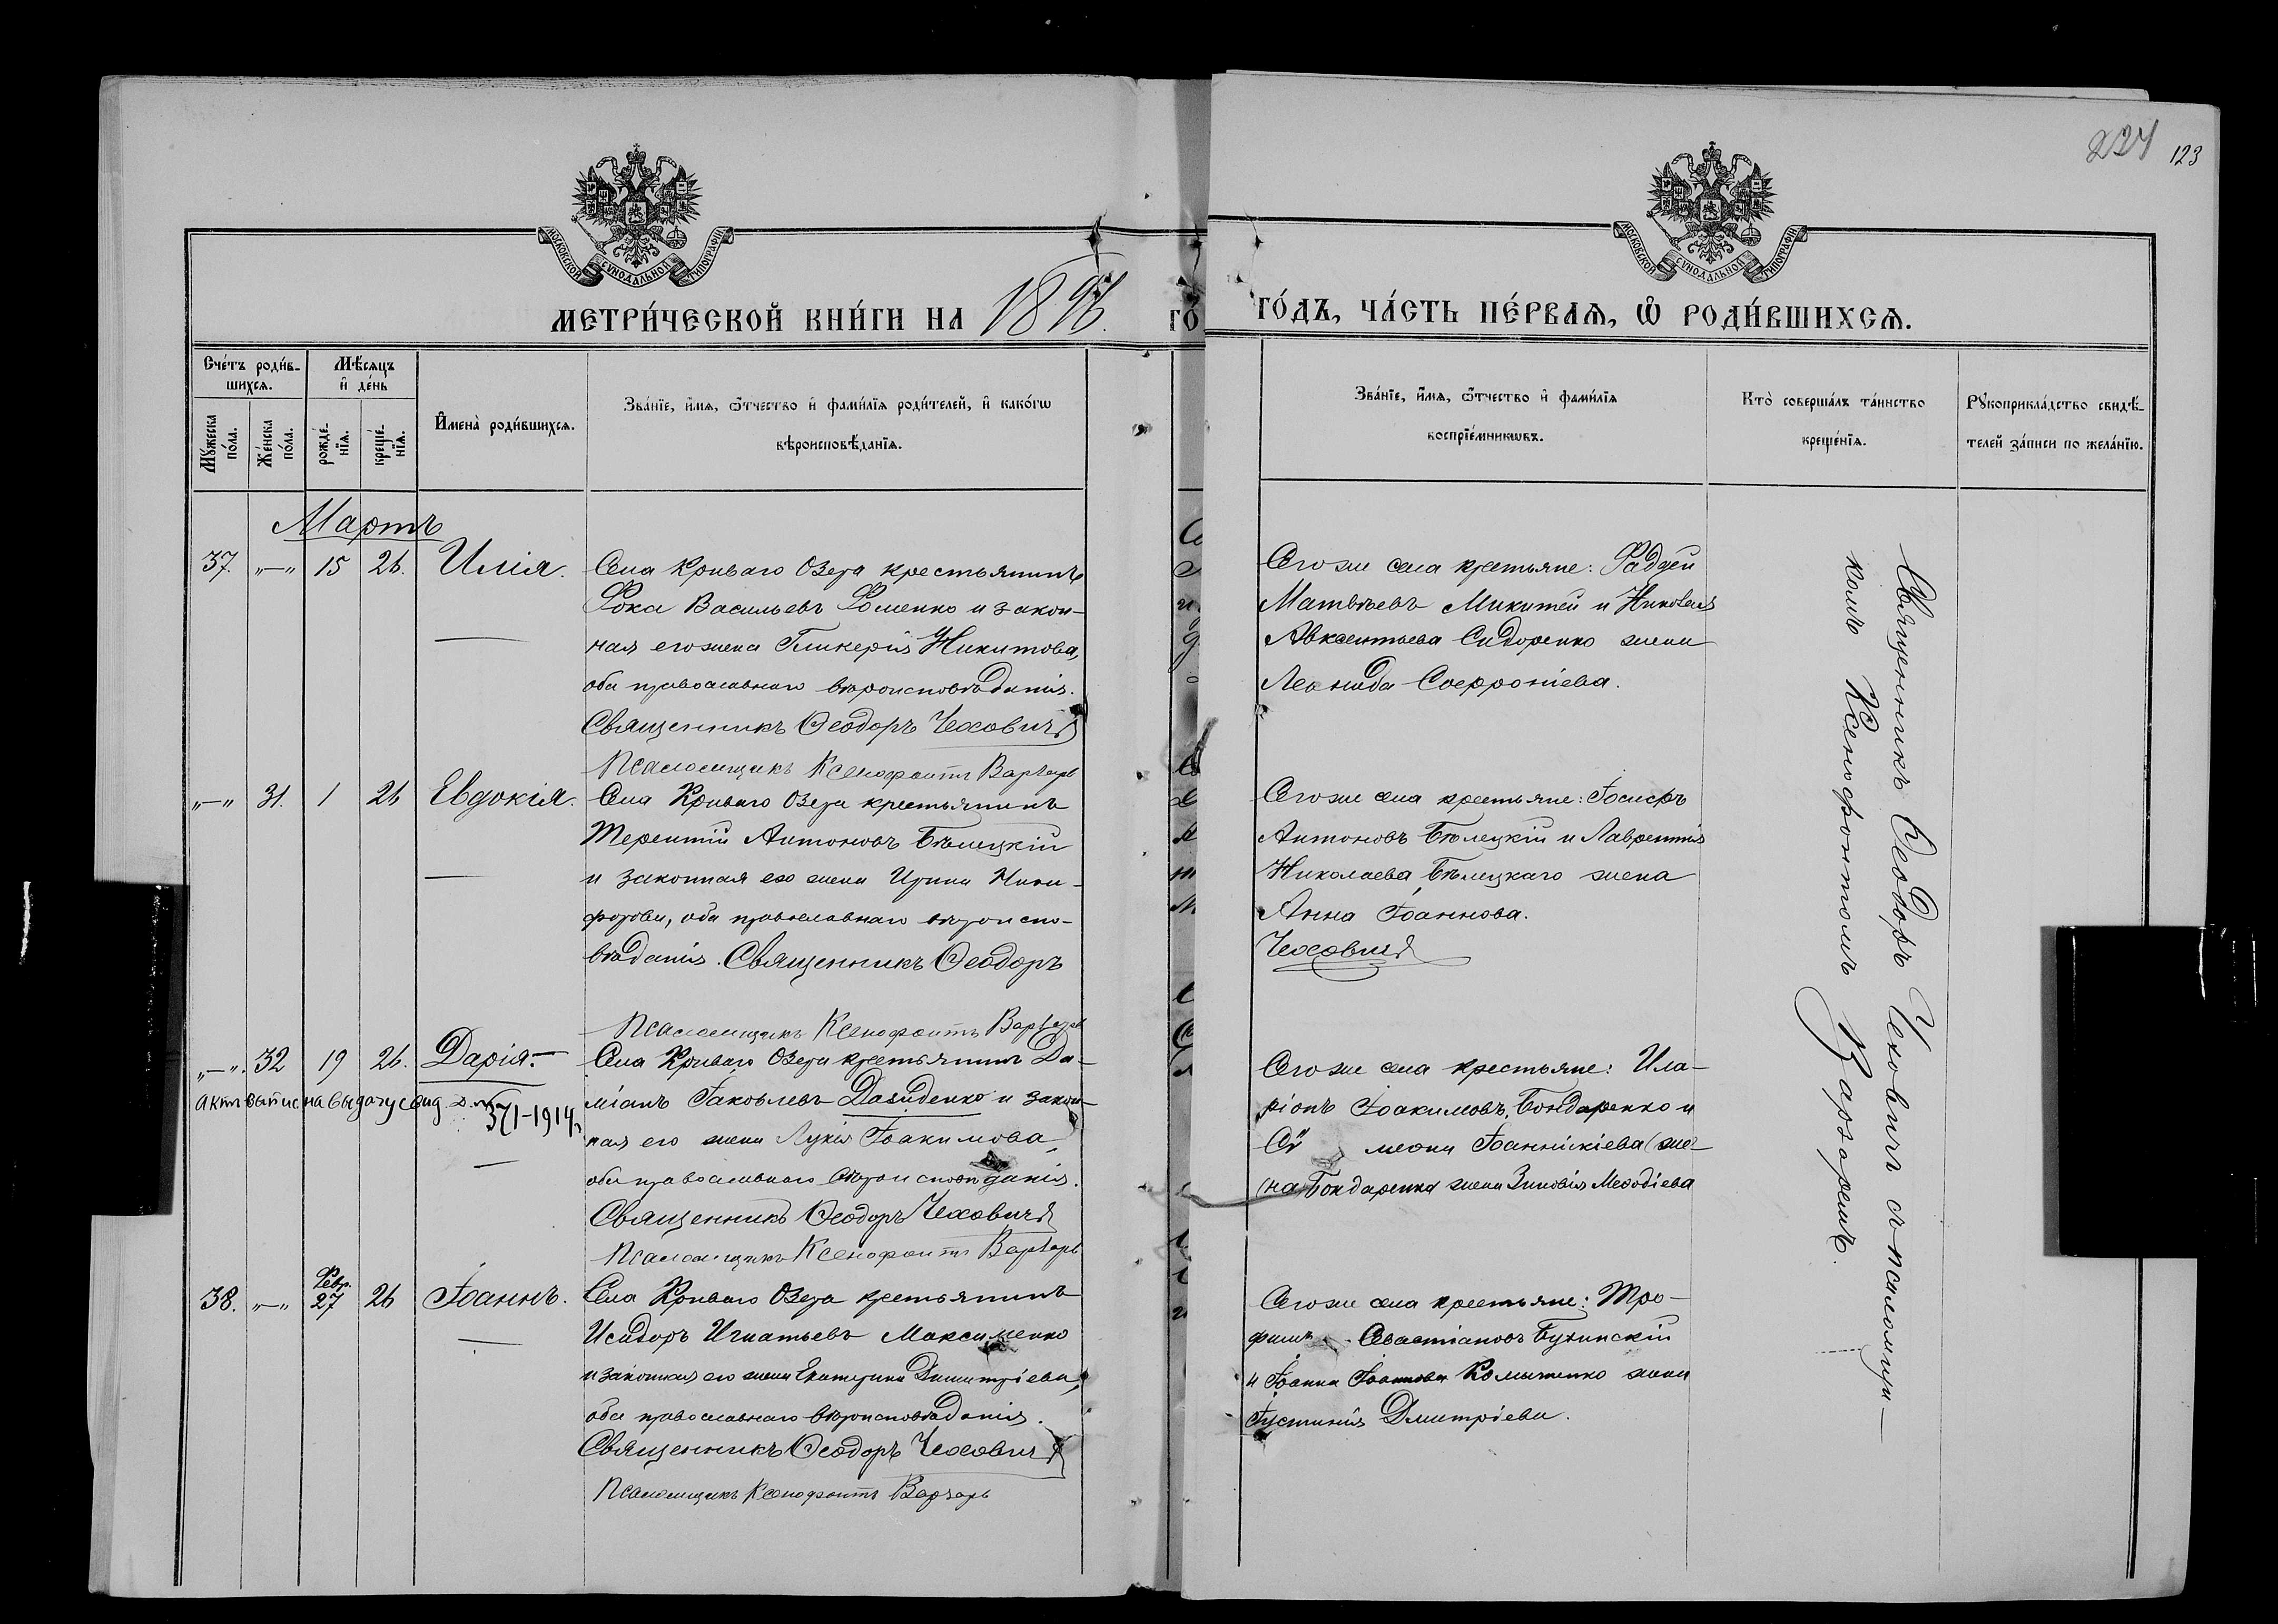 224 123
МОСКОВСКОЙ СУНОДАЛЬНОЙ ТИПОГРАФІИ
МОСКОВСКОЙ СУНОДАЛЬНОЙ ТИПОГРАФІИ
МЕТРИ́ЧЕСКОЙ КНИ́ГИ НА 1896
ГО
ГО́ДЪ, ЧА́СТЬ ПЕ́РВАѦ, Ѡ РОДИ́ВШИХСѦ.
Сче́тъ роди́в-
шихсѧ.
Мꙋ́жеска по́ла.
Же́нска по́ла.
Мѣ́сѧцъ и де́нь
рожде́-
нїѧ.
креще́-
нїѧ.
Имена̀ роди́вшихсѧ.
Зва́нїе, и́мѧ, ѻ́тчество и фами́лїѧ роди́телей, и како́гѡ
вѣроисповѣ́данїѧ.
Зва́нїе, и́мѧ, ѻ́тчество и фами́лїѧ
воспрїе́мникѡвъ.
Кто̀ соверша́лъ та́инство
креще́нїѧ.
Рꙋкоприкла́дство свидѣ́-
телей за́писи по жела́нїю.
Мартъ
37. „—„ 15 26. Илія.
Села Криваго Озера крестьянинъ
Фока Васильевъ Фоменко и закон-
ная его жена Гликерія Никитова,
оба православнаго вѣроисповѣданія.
Священникъ Ѳеодоръ Чехович
Псаломщикъ Ксенофонтъ Варзарь
Того же села крестьяне: Фаддей
Матвѣевъ Микитей и Николая
Авксентьева Сидоренко жена
Леонида Софроніева.
„—„ 31. 1 26 Евдокія.
Села Криваго Озера крестьянинъ
Терентій Антоновъ Бѣлецкій
и законная его жена Ирина Ники-
форова, оба православнаго вѣроиспо-
вѣданія. Священникъ Ѳеодоръ
Псаломщикъ Ксенофонтъ Варзарь
Того же села крестьяне: Іосифъ
Антоновъ Бѣлецкій и Лаврентія
Николаева Бѣлецкаго жена
Анна Іоаннова.
Чехович
„—„. 32 19 26. Дарія.—
Актъ выпис на выдачу свид. д. № 371-1914 г.
Села Криваго Озера крестьянинъ Да-
міанъ Іаковлевъ Давиденко и закон-
ная его жена Лукія Іоакимова,
оба православнаго вѣроисповѣданія.
Священникъ Ѳеодоръ Чехович
Псаломщикъ Ксенофонтъ Варзарь
Того же села крестьяне: Ила-
ріонъ Іоакимовъ Бондаренко и
меона Іоанникіева (же-
на) Бондаренка жена Зиновія Меѳодіева
38. „—„ Февр. 27 26 Іоаннъ.
Села Криваго Озера крестьянинъ
Исидоръ Игнатьевъ Максименко
и законная его жена Екатерина Димитріева,
оба православнаго вѣроисповѣданія.
Священникъ Ѳеодоръ Чехович
Псаломщикъ Ксенофонтъ Варзарь
Того же села крестьяне: Тро-
фимъ Севастіановъ
и Іоанна Іоаннова жена
Іустинія Дмитріева.
Священникъ Ѳеодоръ Чеховичъ съ псаломщи-
комъ Ксенофонтомъ Варзаремъ.